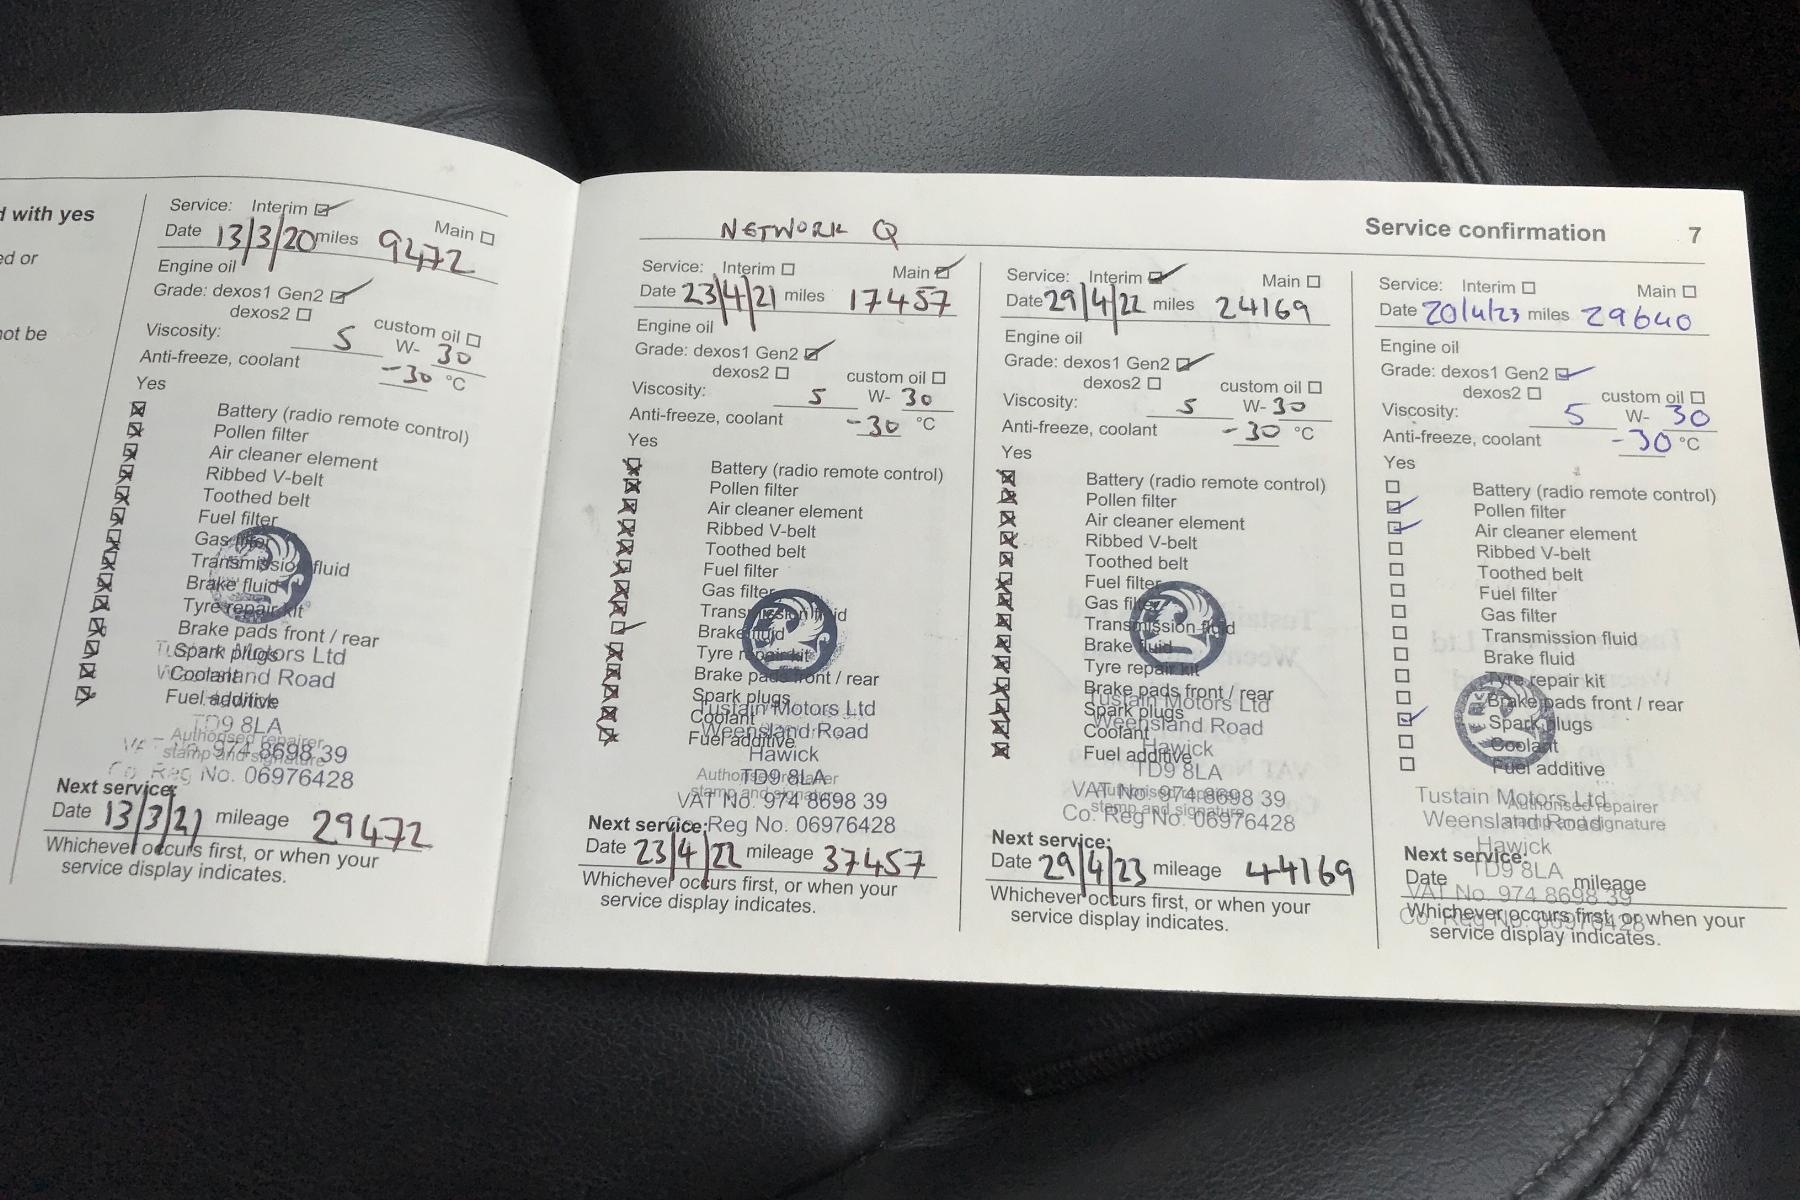 d with yes
ed or
not be
Service: Interim
Main
Date 13/3/20 miles 9472
Engine oil
Grade: dexos1 Gen2
dexos2
custom oil
Viscosity: 5 W- 30
Anti-freeze, coolant -30 °C
Yes
Battery (radio remote control)
Pollen filter
Air cleaner element
Ribbed V-belt
Toothed belt
Fuel filter
Gas filter
Transmission fluid
Brake fluid
Tyre repair kit
Brake pads front / rear
Spark plugs
Tustain Motors Ltd
Coolant
Weensland Road
Fuel additive
TD9 8LA
Authorised repairer
stamp and signature
VAT No. 974 8698 39
Co. Reg No. 06976428
Next service:
Date 13/3/21 mileage 29472
Whichever occurs first, or when your
service display indicates.
NETWORK Q
Service confirmation 7
Service: Interim Main
Date 23/4/21 miles 17457
Engine oil
Grade: dexos1 Gen2
dexos2 custom oil
Viscosity: 5 W- 30
Anti-freeze, coolant -30 °C
Yes
Battery (radio remote control)
Pollen filter
Air cleaner element
Ribbed V-belt
Toothed belt
Fuel filter
Gas filter
Transmission fluid
Brake fluid
Tyre repair kit
Brake pads front / rear
Spark plugs
Tustain Motors Ltd
Coolant
Weensland Road
Fuel additive
Hawick
Authorised repairer
TD9 8LA
stamp and signature
VAT No. 974 8698 39
Next service:
Reg No. 06976428
Date 23/4/22 mileage 37457
Whichever occurs first, or when your
service display indicates.
Service: Interim Main
Date 29/4/22 miles 24169
Engine oil
Grade: dexos1 Gen2
dexos2 custom oil
Viscosity: 5 W- 30
Anti-freeze, coolant -30 °C
Yes
Battery (radio remote control)
Pollen filter
Air cleaner element
Ribbed V-belt
Toothed belt
Fuel filter
Gas filter
Transmission fluid
Brake fluid
Tyre repair kit
Brake pads front / rear
Tustain Motors Ltd
Spark plugs
Weensland Road
Coolant
Hawick
Fuel additive
TD9 8LA
Authorised repairer
VAT No. 974 8698 39
stamp and signature
Co. Reg No. 06976428
Next service:
Date 29/4/23 mileage 44169
Whichever occurs first, or when your
service display indicates.
Service: Interim Main
Date 20/4/23 miles 29640
Engine oil
Grade: dexos1 Gen2
dexos2 custom oil
Viscosity: 5 W- 30
Anti-freeze, coolant -30 °C
Yes
Battery (radio remote control)
Pollen filter
Air cleaner element
Ribbed V-belt
Toothed belt
Fuel filter
Gas filter
Transmission fluid
Brake fluid
Tyre repair kit
Brake pads front / rear
Spark plugs
Coolant
Fuel additive
Tustain Motors Ltd
Authorised repairer
Weensland Road
stamp and signature
Hawick
Next service:
TD9 8LA
Date mileage
VAT No. 974 8698 39
Whichever occurs first, or when your
Co. Reg No. 06976428
service display indicates.